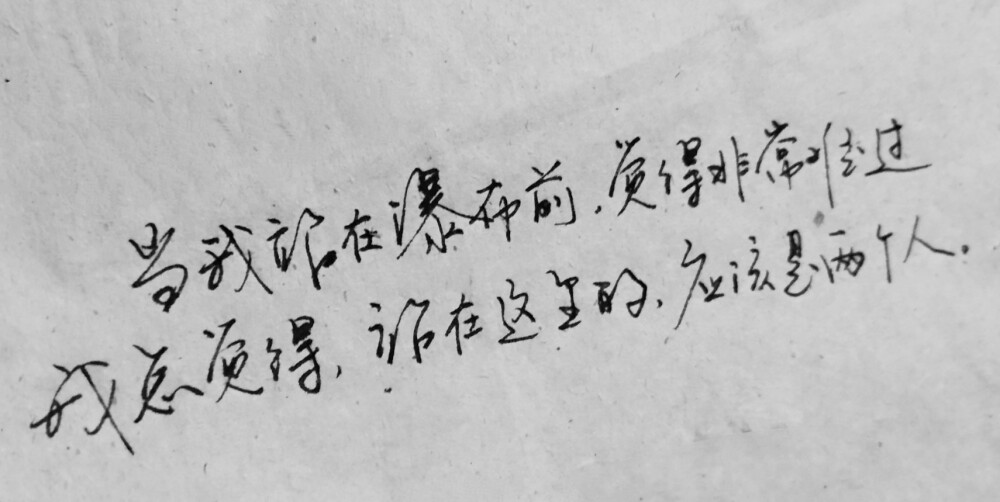 当我站在瀑布前，觉得非常难过
我总觉得，站在这里的，应该是两个人。